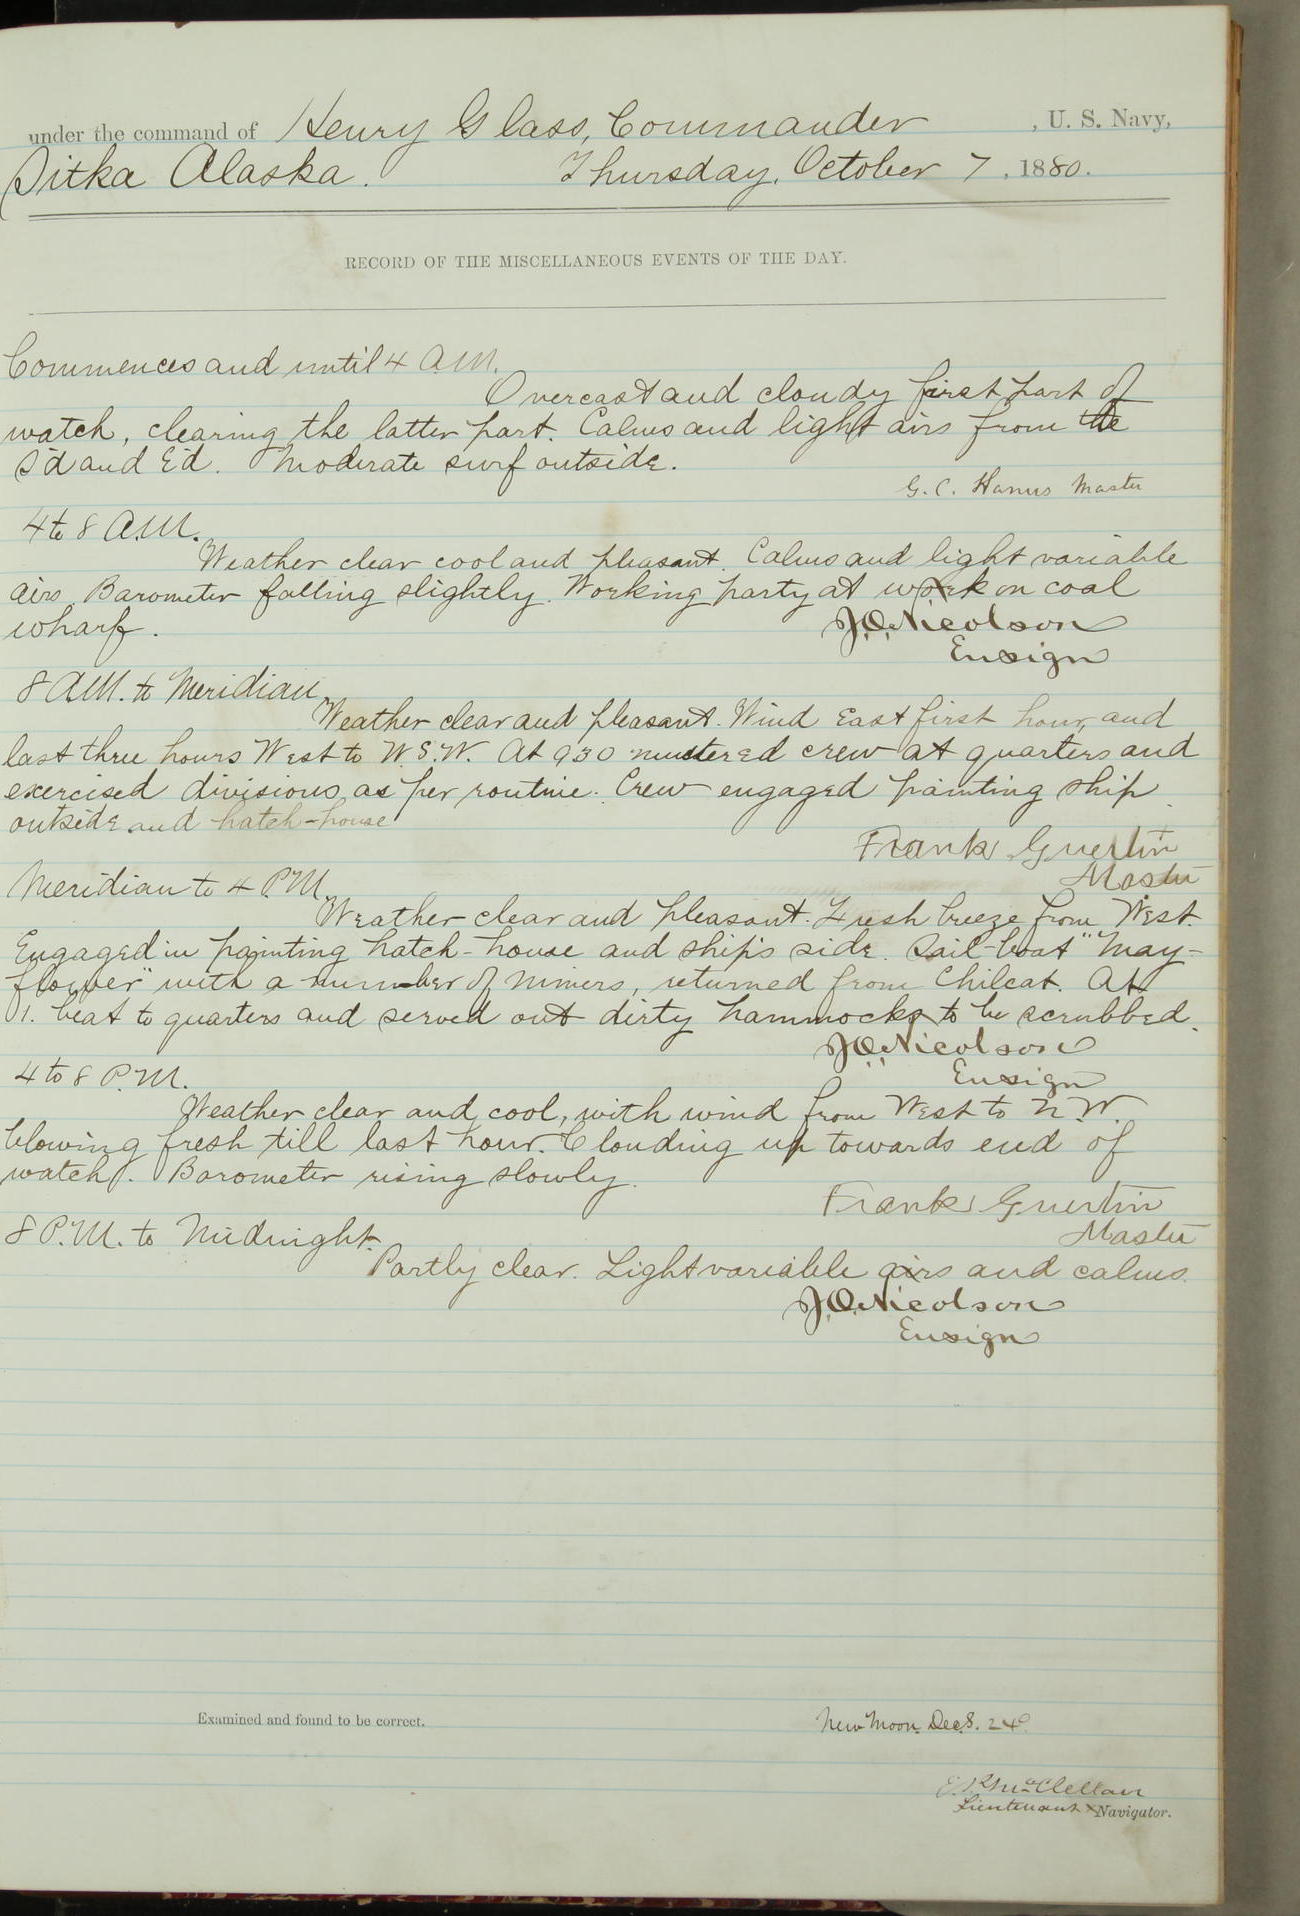 under the command of Henry Glass, Commander , U. S. Navy,
Sitka Alaska. Thursday, October 7, 1880.
RECORD OF THE MISCELLANEOUS EVENTS OF THE DAY.
Commences and until 4 A.M.
Overcast and cloudy first part of
watch, clearing the latter part. Calms and light airs from the
S'd and E'd. Moderate surf outside.
G. C. Hanus Master
4 to 8 A.M.
Weather clear cool and pleasant. Calms and light variable
airs. Barometer falling slightly. Working party at work on coal
wharf.
J.O. Nicolson
Ensign
8 A.M. to Meridian
Weather clear and pleasant. Wind East first hour, and
last three hours West to W.S.W. At 930 mustered crew at quarters and
exercised divisions, as per routine. Crew engaged painting ship
outside and hatch-house
Frank Guertin
Master
Meridian to 4 P.M.
Weather clear and pleasant. Fresh breeze from West.
Engaged in painting hatch-house and ship's side. Sail-boat "May-
flower" with a number of miners, returned from Chilcat. At
1. beat to quarters and served out dirty hammocks to be scrubbed.
J.O. Nicolson
Ensign
4 to 8 P.M.
Weather clear and cool, with wind from West to N.W.
blowing fresh till last hour. Clouding up towards end of
watch. Barometer rising slowly.
Frank Guertin
Master
8 P.M. to Midnight.
Partly clear. Light variable airs and calms.
J.O. Nicolson
Ensign
Examined and found to be correct.
New Moon. Dec S. 24°
McClellan
Lieutenant & Navigator.